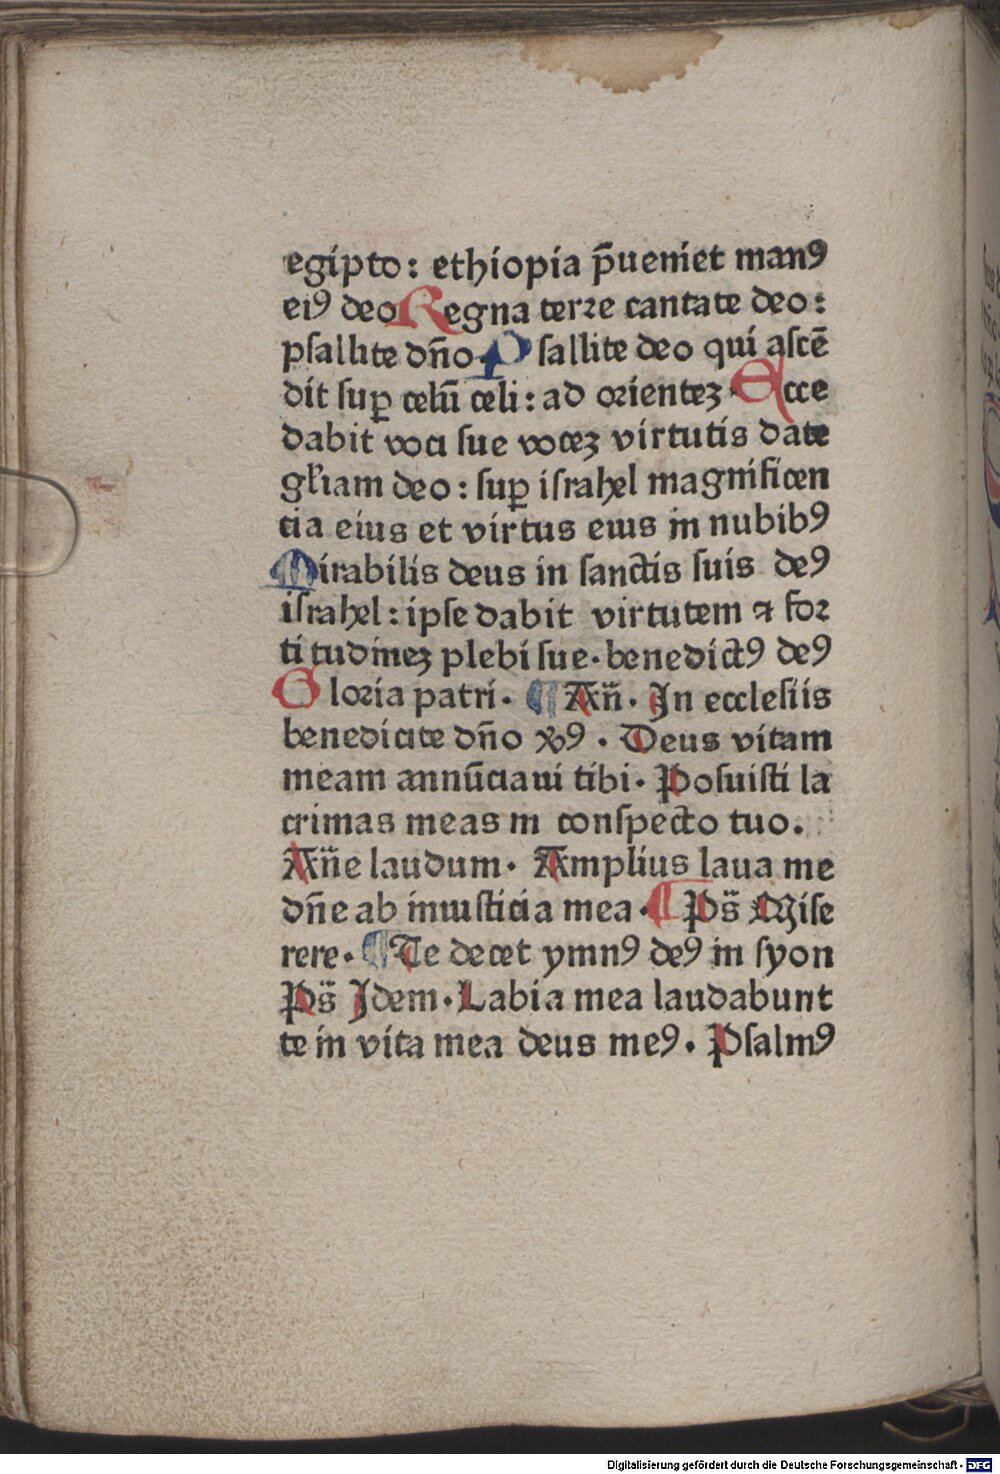 egipto: ethiopia p̄ueniet manꝰ
eiꝰ deo Regna terre cantate deo:
psallite dn̄o Psallite deo qui ascē
dit suꝑ celū celi: ad orientez Ecce
dabit voci sue vocez virtutis date
gl̄iam deo: suꝑ israhel magnificen
cia eius et virtus eius in nubibꝰ
Mirabilis deus in sanctis suis deꝰ
israhel: ipse dabit virtutem ⁊ for
titudinez plebi sue· benedictꝰ deꝰ
Gloria patri· ¶ An̄· In ecclesiis
benedicite dn̄o xp̄ꝰ· Deus vitam
meam annūciaui tibi· Posuisti la
crimas meas in conspecto tuo.
An̄e laudum· Amplius laua me
dn̄e ab iniusticia mea· ¶ Ps̄ Mise
rere· ¶ Te decet ymnꝰ deꝰ in syon
Ps̄ Idem· Labia mea laudabunt
te in vita mea deus meꝰ· Psalmꝰ
Digitalisierung gefördert durch die Deutsche Forschungsgemeinschaft - DFG